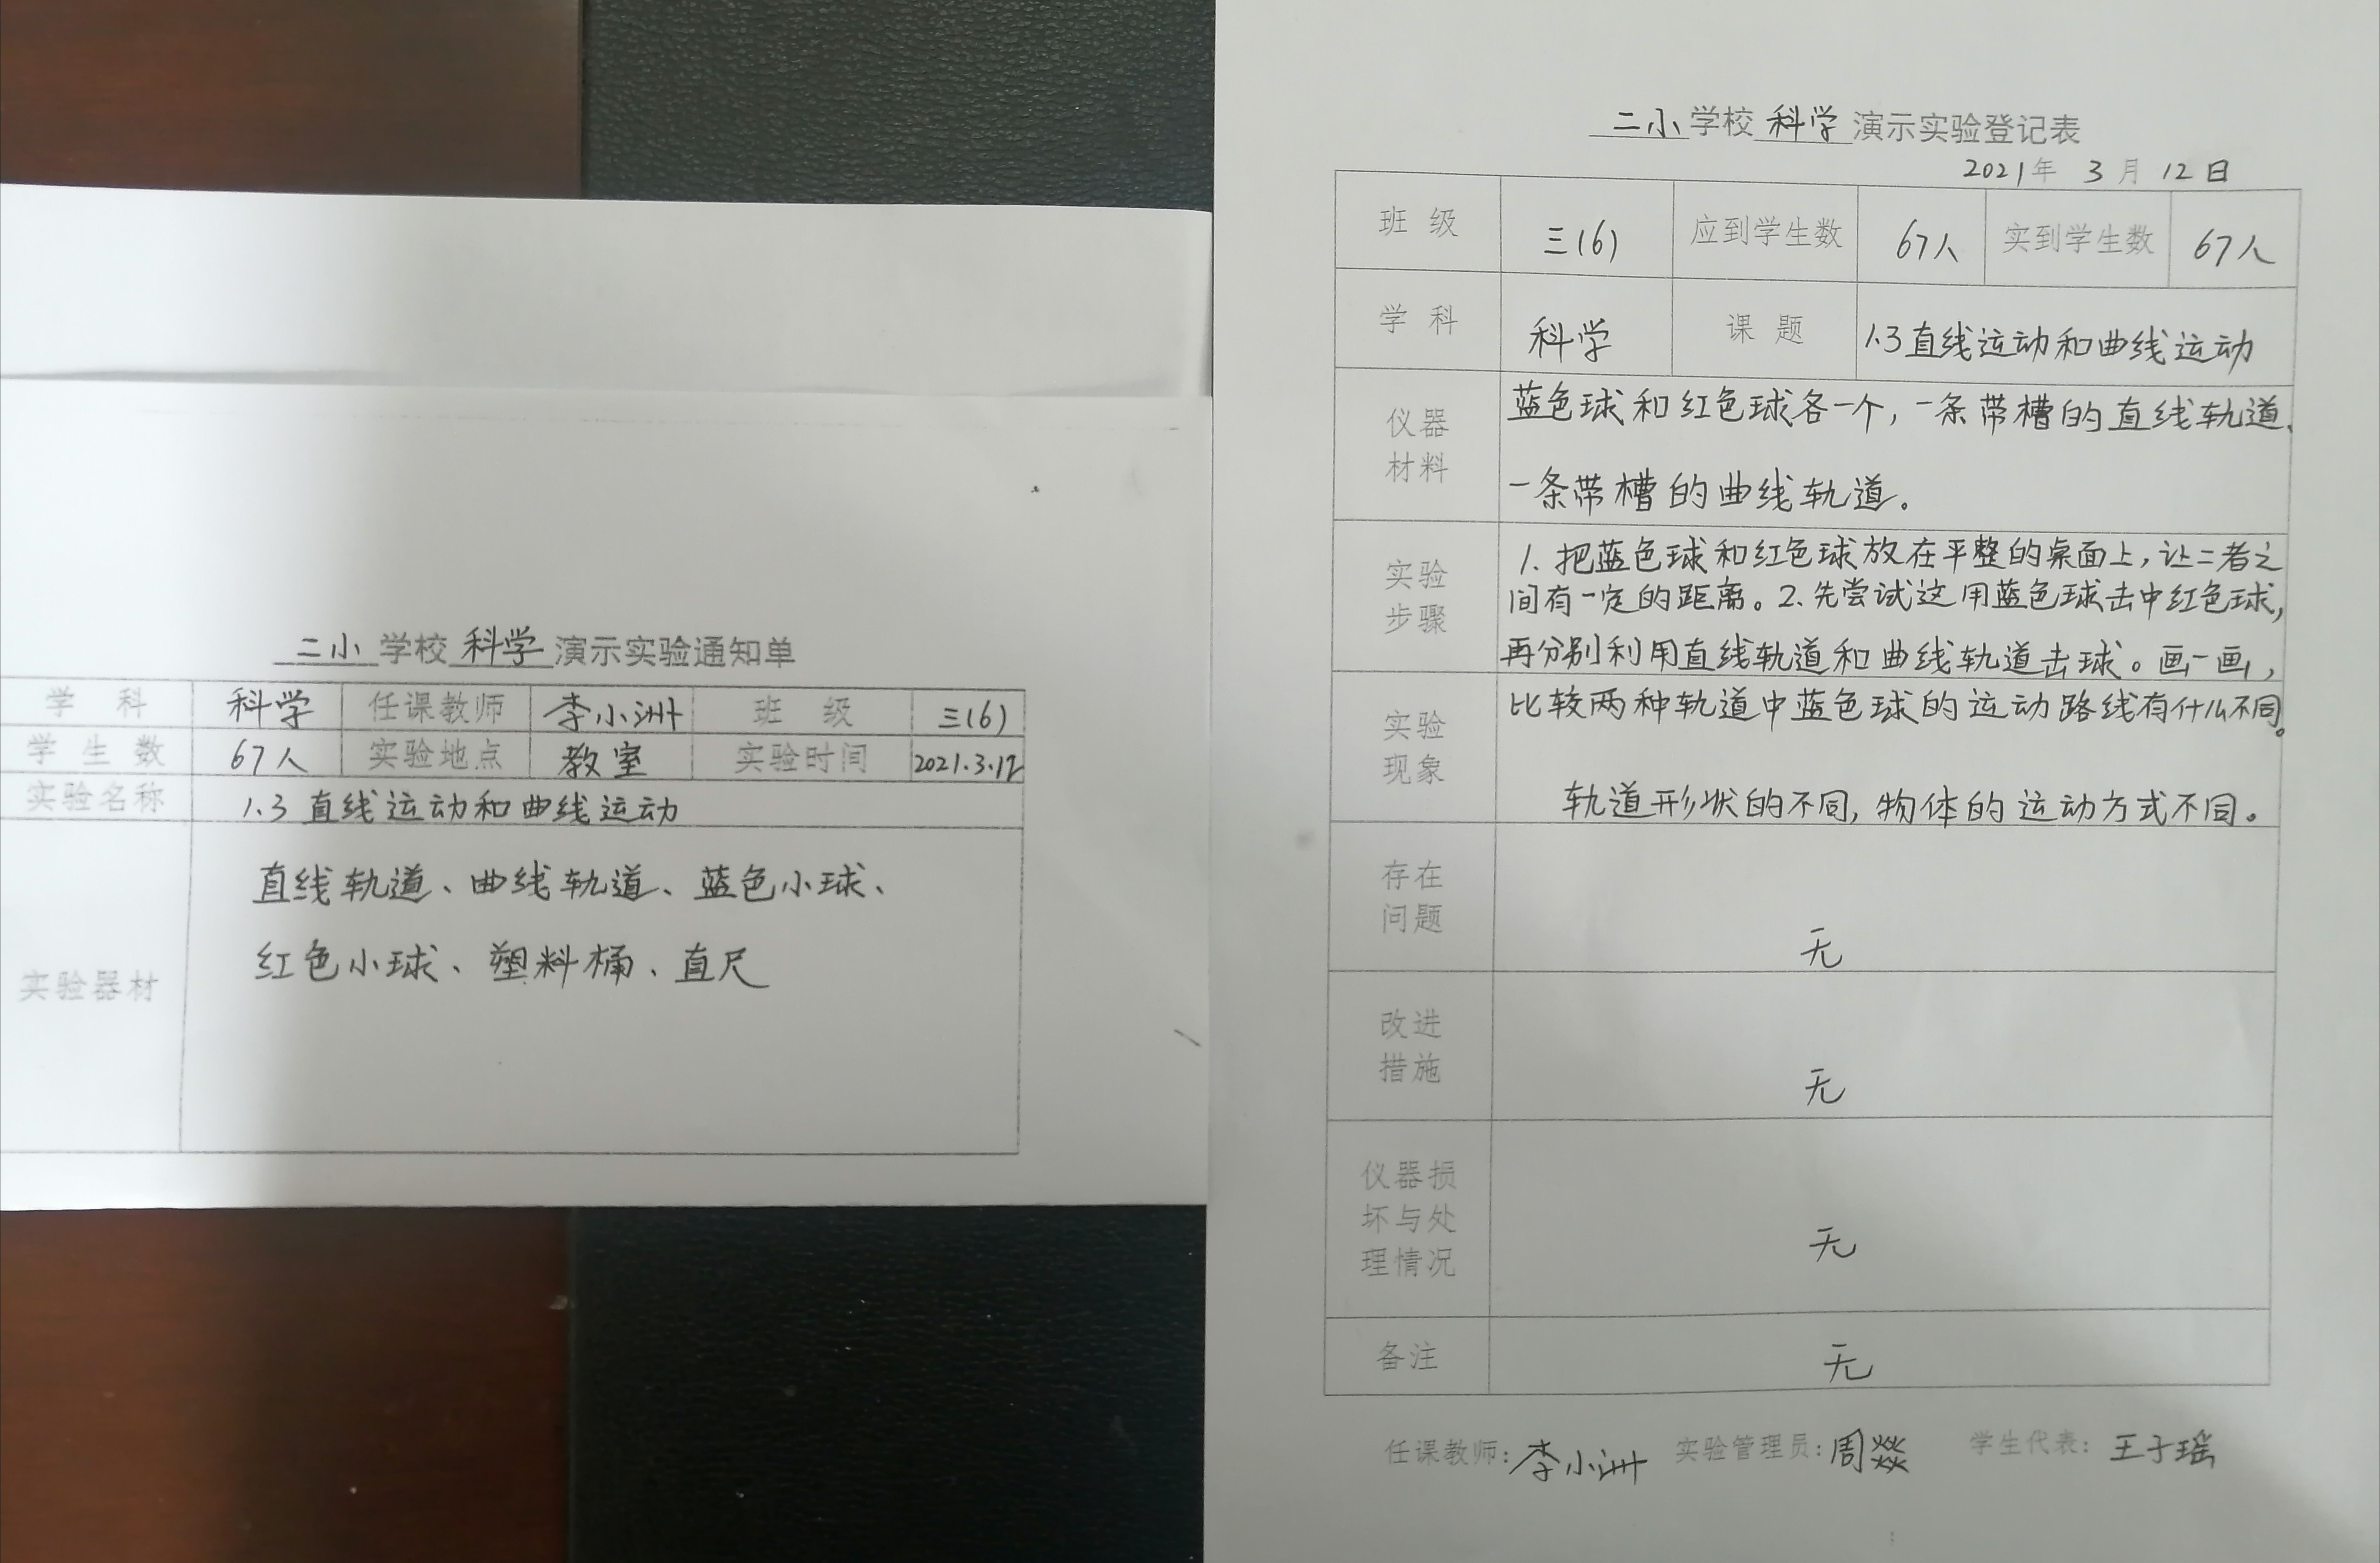 二小学校科学演示实验通知单
学 科 科学 任课教师 李小洲 班 级 三(6)
学 生 数 67人 实验地点 教室 实验时间 2021.3.12
实验名称 1.3 直线运动和曲线运动
直线轨道、曲线轨道、蓝色小球、
红色小球、塑料桶、直尺
实验器材
二小学校科学演示实验登记表
2021年 3月 12日
班 级 三(6) 应到学生数 67人 实到学生数 67人
学 科 科学 课 题 1.3直线运动和曲线运动
仪器
材料
蓝色球和红色球各一个,一条带槽的直线轨道、
一条带槽的曲线轨道。
实验
步骤
1. 把蓝色球和红色球放在平整的桌面上,让二者之
间有一定的距离。2.先尝试这用蓝色球击中红色球,
再分别利用直线轨道和曲线轨道击球。画一画,
比较两种轨道中蓝色球的运动路线有什么不同。
实验
现象
轨道形状的不同,物体的运动方式不同。
存在
问题
无
改进
措施
无
仪器损
坏与处
理情况
无
备注 无
任课教师:李小洲 实验管理员:周燚 学生代表:王子瑶